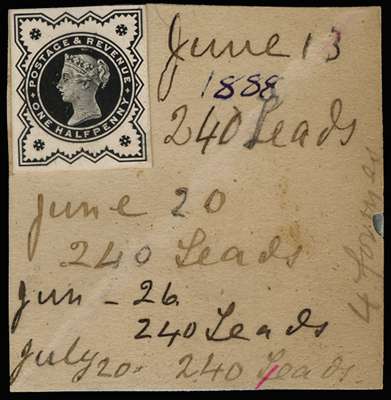 POSTAGE & REVENUE
ONE HALFPENNY
June 13
1888
240 Leads
June 20
240 Leads
Jun - 26
240 Leads
July 20. 240 Leads.
4